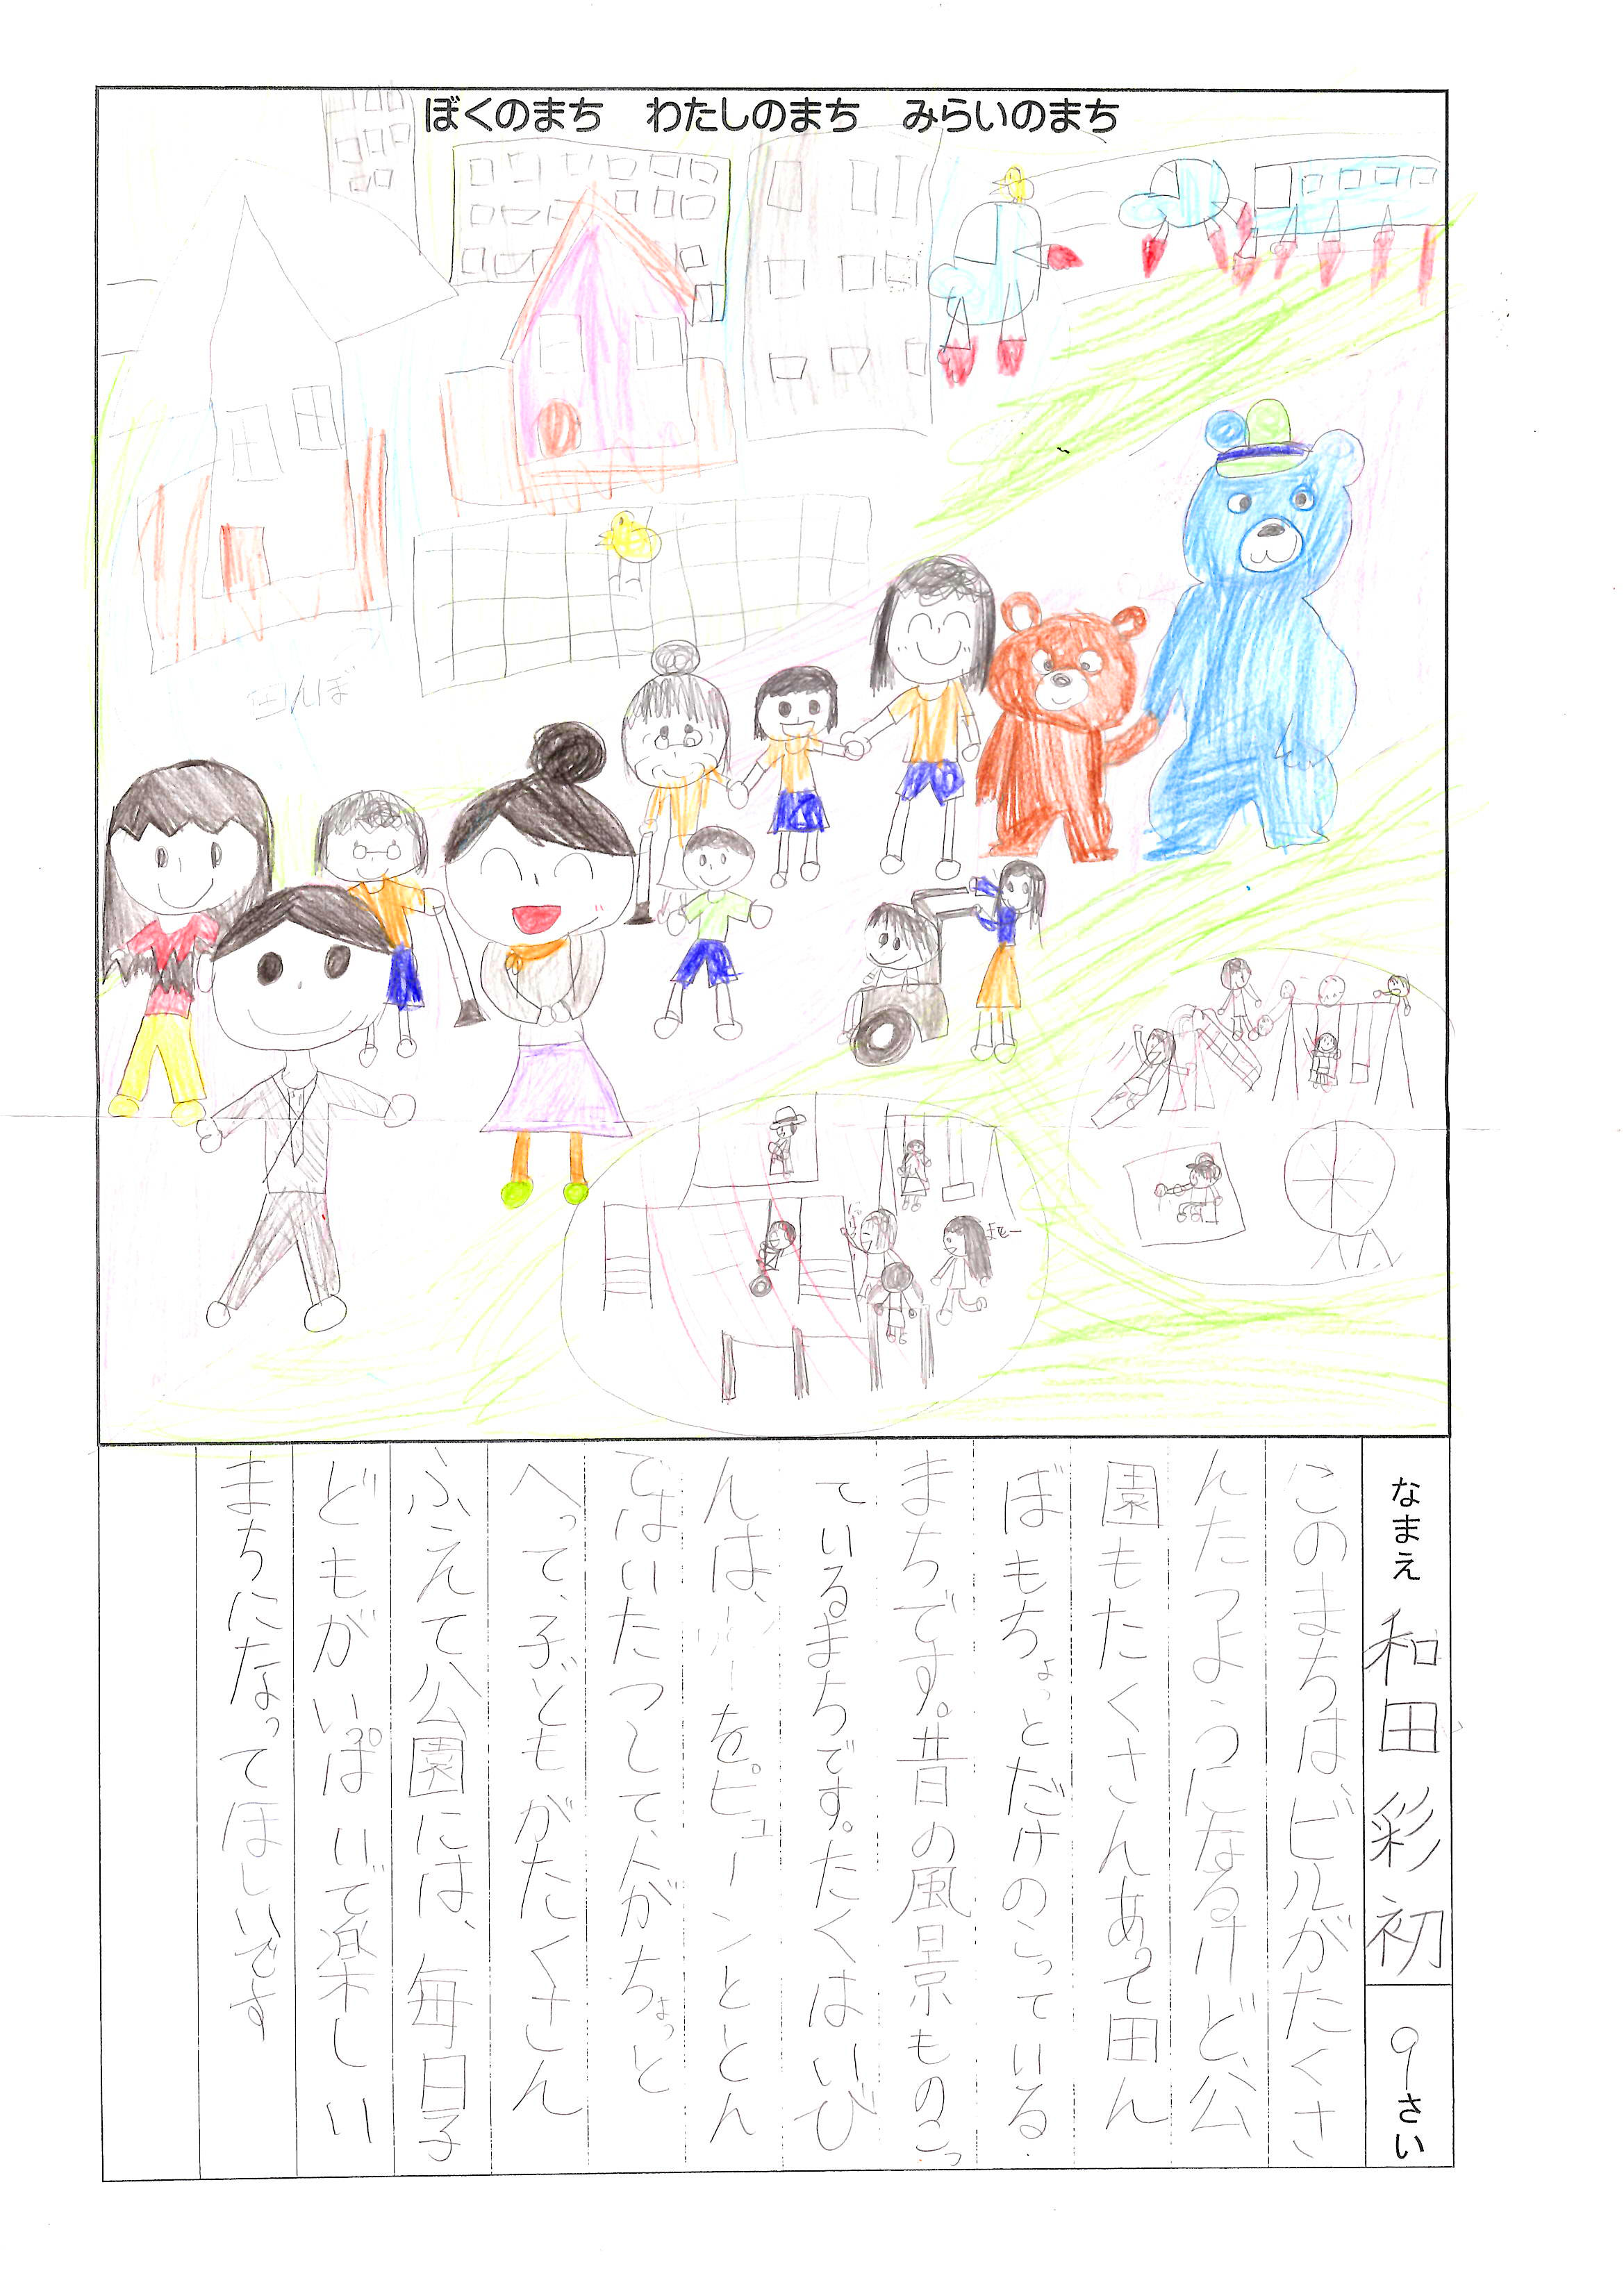 ぼくのまち　わたしのまち　みらいのまち
田んぼ
まてー
なまえ　和田彩初　9さい
このまちは、ビルがたくさ
んたつようになるけど、公
園もたくさんあって田ん
ぼもちょっとだけのこっている
まちです。昔の風景ものこっ
ているまちです。たくはいび
んは、をピューンととん
ではいたつして、人がちょっと
へって、子どもがたくさん
ふえて公園には、毎日子
どもがいっぱいで楽しい
まちになってほしいです